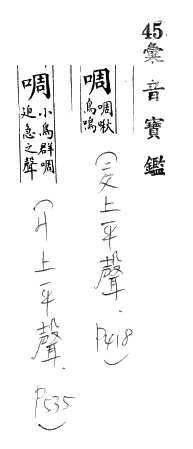 45彙音寶鑑
啁
啁啾
鳥鳴
(交上平聲. P418)
啁
小鳥群啁
迫急之聲
(丩上平聲. P535)